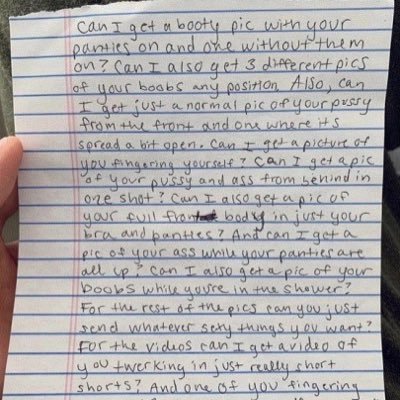 Can I get a booty pic with your
panties on and one without them
on? Can I also get 3 different pics
of your boobs any position. Also, can
I get just a normal pic of your pussy
from the front and one where its
spread a bit open. Can I get a picture of
you fingering yourself? Can I get a pic
of your pussy and ass from behind in
one shot? Can I also get a pic of
your full front body in just your
bra and panties? And can I get a
pic of your ass while your panties are
all up? Can I also get a pic of your
boobs while you're in the shower?
For the rest of the pics can you just
send whatever sexy things you want?
For the videos can I get a video of
you twerking in just really short
shorts? And one of you fingering